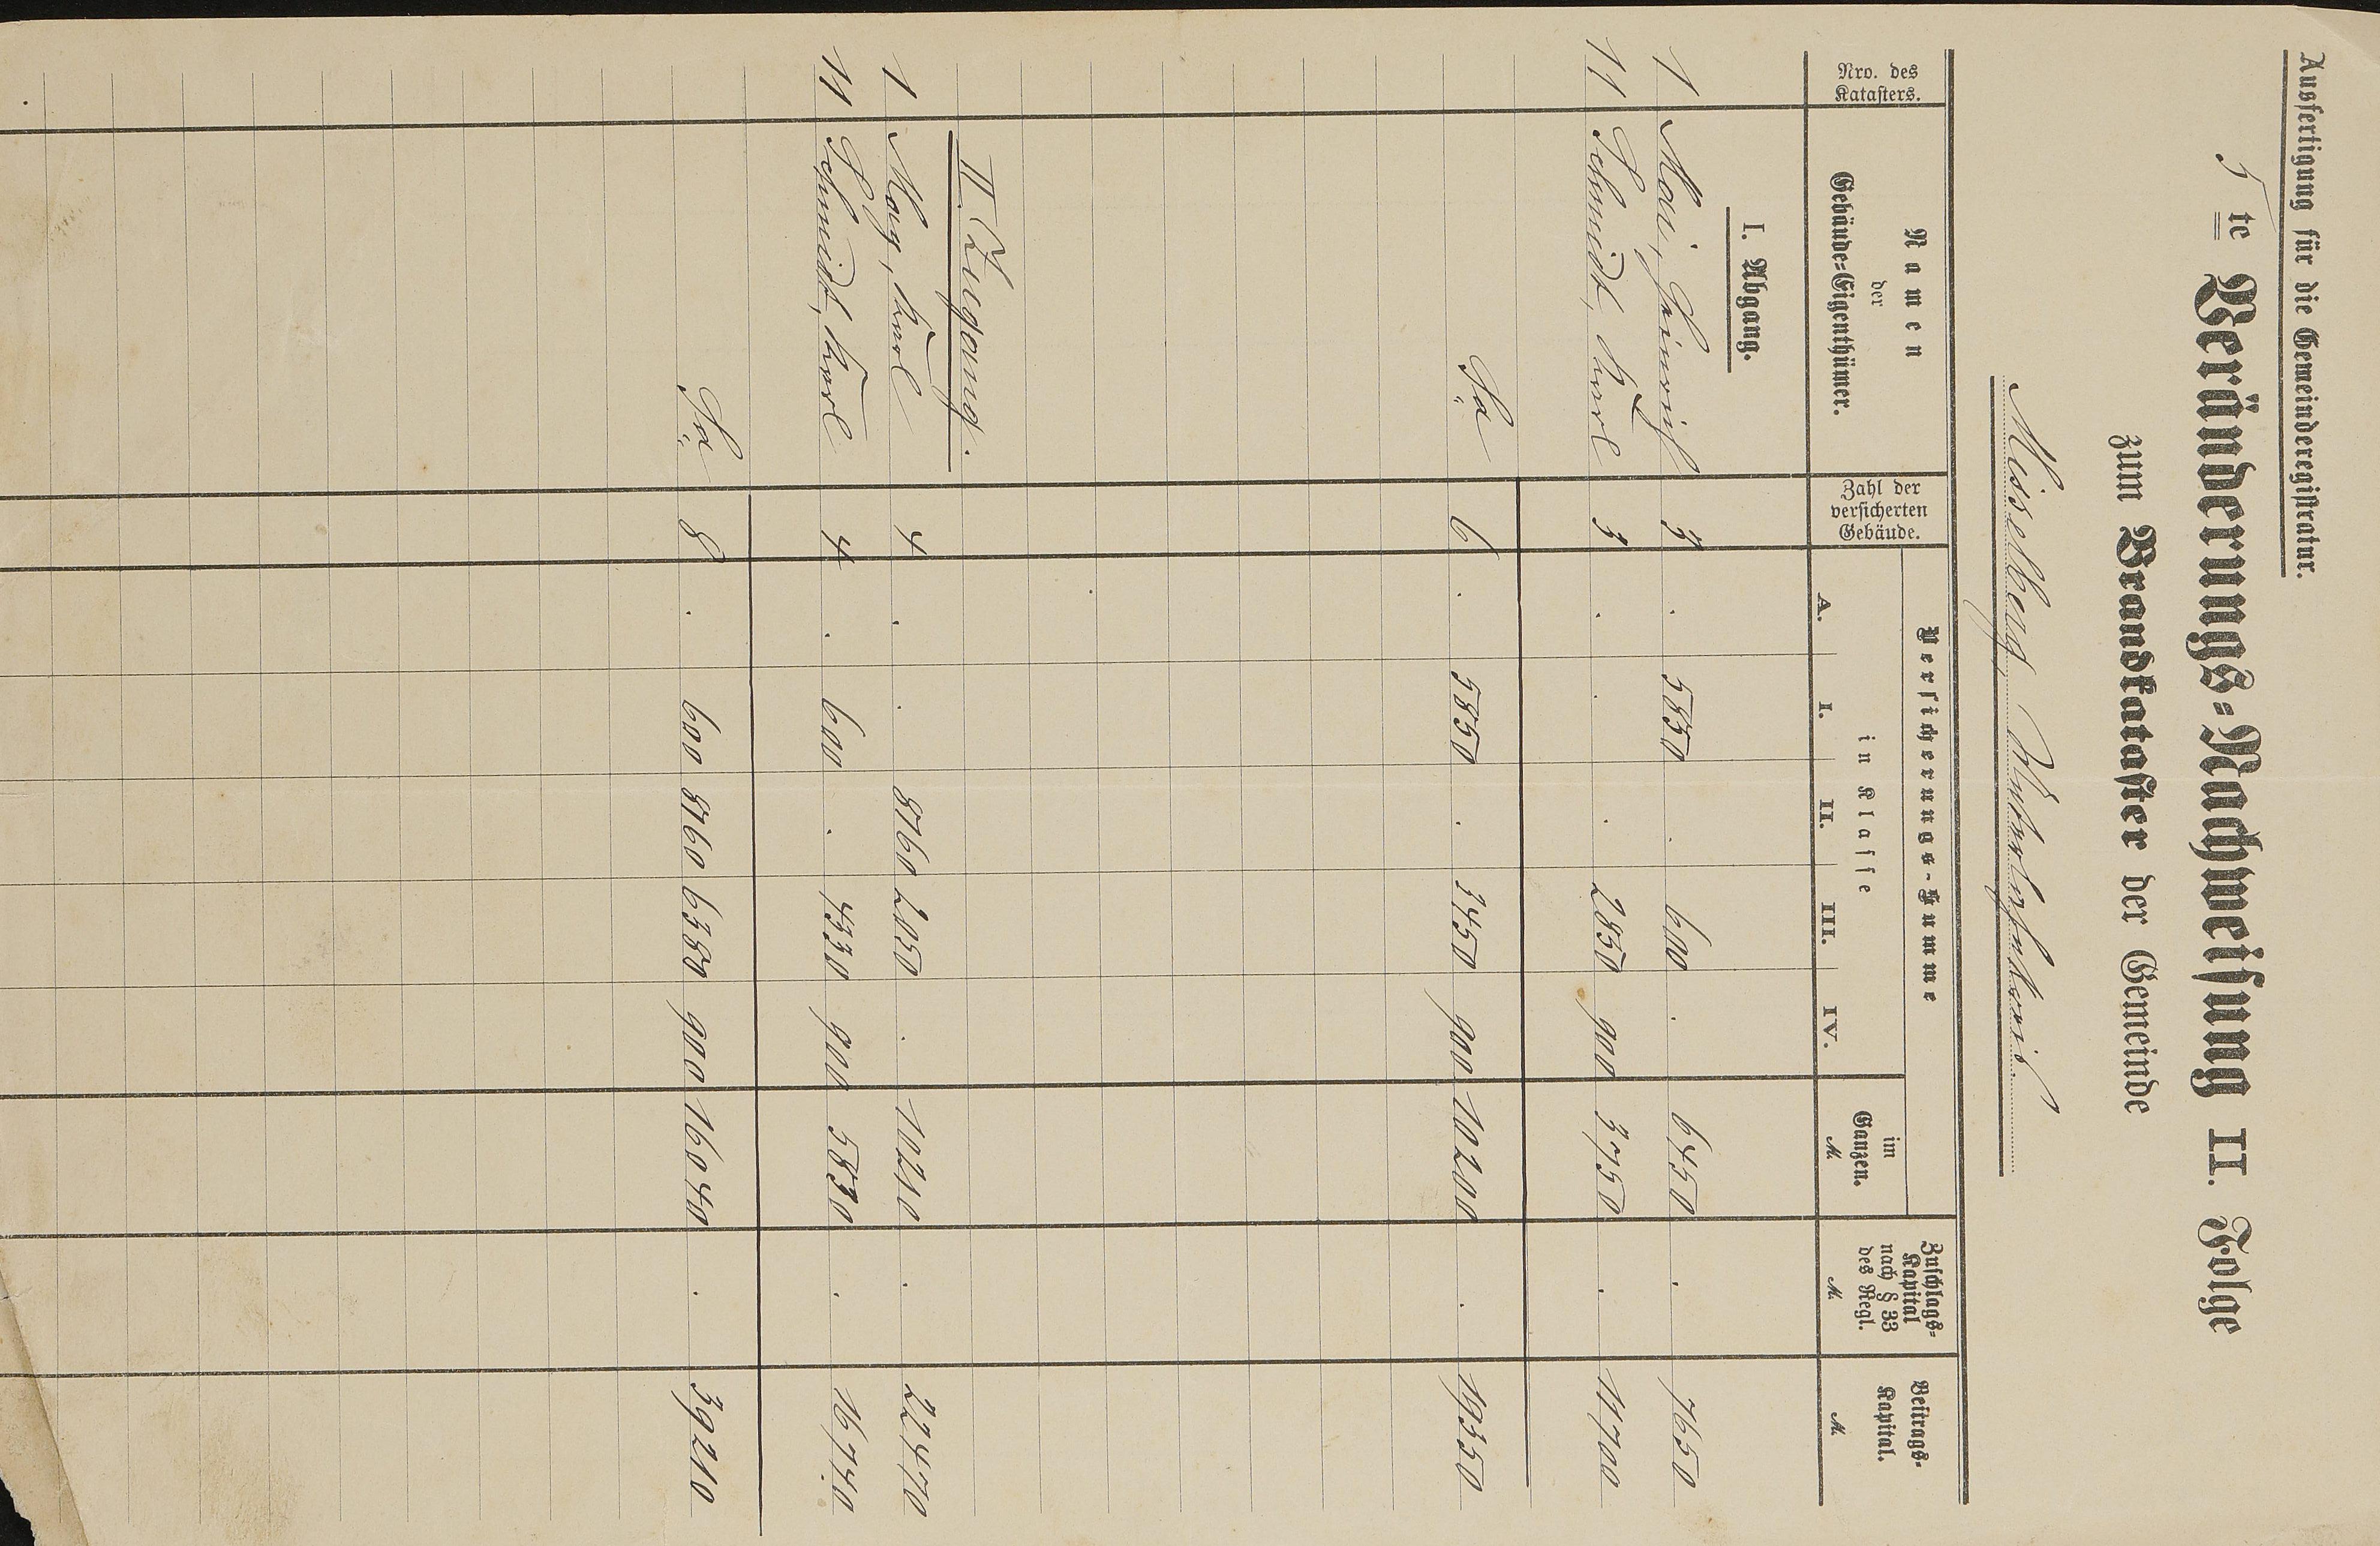 Ausfertigung für die Gemeinderegistratur.
5 te Veränderungs-Nachweisung II. Folge
zum Brandkataster der Gemeinde
Misselberg, Unterlahnkreis
Nro. des Katasters. Namen der Gebäude-Eigenthümer. Zahl der versicherten Gebäude. Versicherungs-Summe in Klasse A. I. II. III. IV. im Ganzen. M. Zuschlags-Kapital nach § 33 des Regl. M. Beitrags-Kapital. M.
I. Abgang.
1 Mai, Heinrich 3 . 5850 . 600 . 6450 . 7650
11 Schmidt, Karl 3 . . . 2850 900 3750 . 11700
Sa 6 . 5850 . 3450 900 10200 . 19350
II. Zugang.
1 May, Karl 4 . . 8160 2050 . 10210 . 22470
11 Schmidt, Karl 4 . 600 . 4330 900 5830 . 16740
Sa 8 . 600 8160 6380 900 16040 . 39210